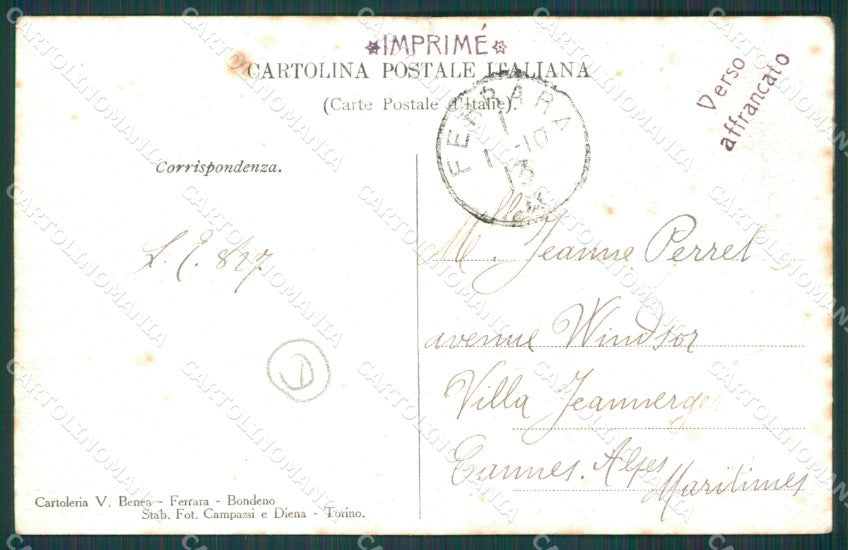 IMPRIMÉ
CARTOLINA POSTALE ITALIANA
(Carte Postale d'Italie).
Verso
affrancato
FERRARA
1-10
13
Corrispondenza.
L. E. 827
Mlle. Jeanne Perret
avenue Windsor
Villa
Cannes. Alpes
Maritimes
Cartoleria V. Benea - Ferrara - Bondeno
Stab. Fot. Campassi e Diena - Torino.
CARTOLINOMANIA